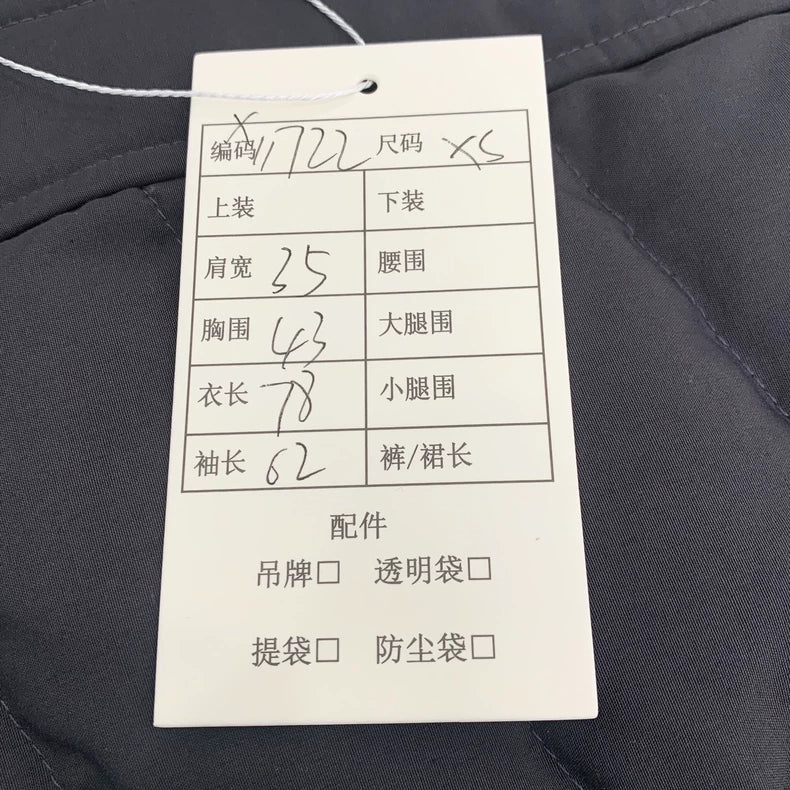 编码 X11722 尺码 XS
上装 下装
肩宽 35 腰围
胸围 43 大腿围
衣长 78 小腿围
袖长 62 裤/裙长
配件
吊牌□ 透明袋□
提袋□ 防尘袋□